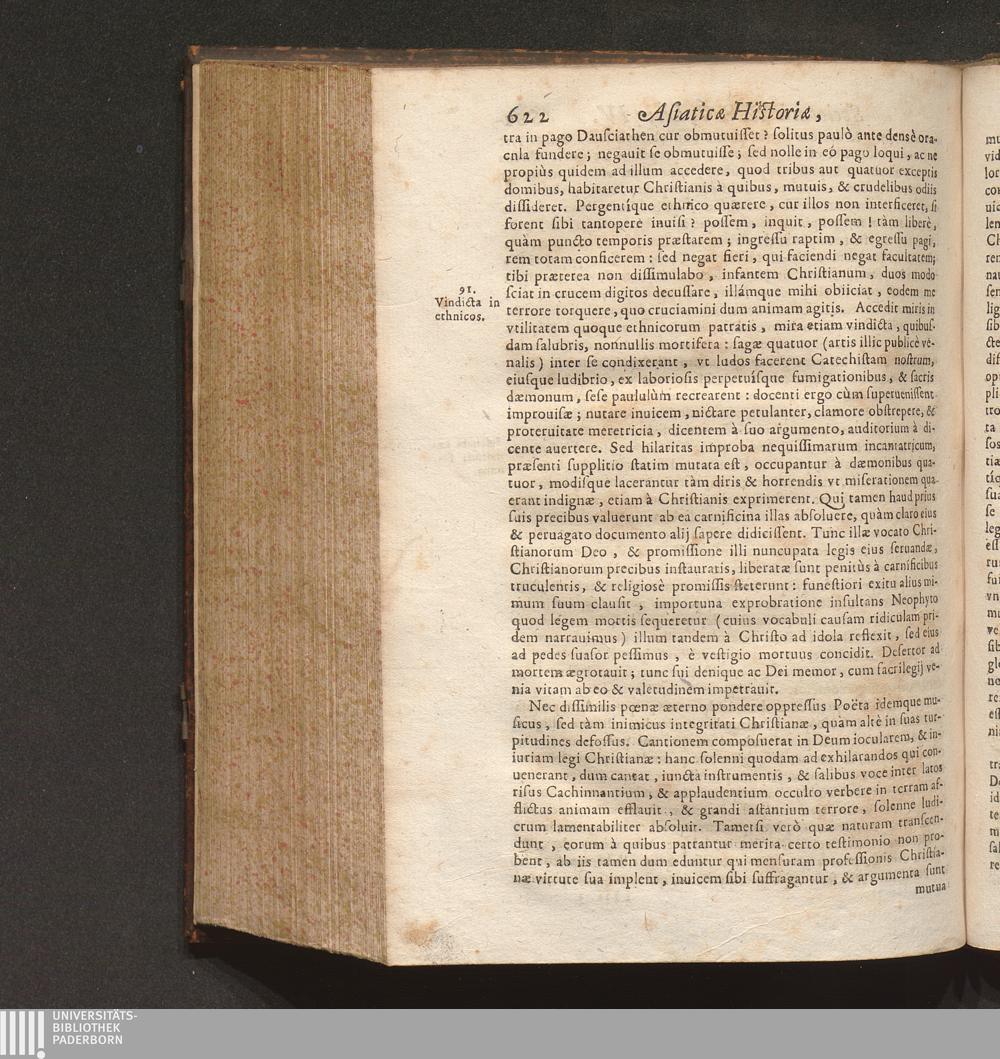 622 Asiaticæ Historiæ,
tra in pago Dausciathen cur obmutuisset ? solitus paulò ante densè ora-
cnla fundere ; negauit se obmutuisse ; sed nolle in eó pago loqui , ac ne
propiùs quidem ad illum accedere, quod tribus aut quatuor exceptis
domibus, habitaretur Christianis à quibus, mutuis, & crudelibus odiis
dissideret. Pergentíque ethnico quærere , cur illos non interficeret, si
forent sibi tantopere inuisi ? possem , inquit , possem ! tàm liberè,
quàm puncto temporis præstarem ; ingressu raptim , & egressu pagi,
rem totam conficerem : sed negat fieri , qui faciendi negat facultatem;
tibi præterea non dissimulabo , infantem Christianum , duos modo
91.
Vindicta in
ethnicos.
sciat in crucem digitos decussare , illámque mihi obiiciat , eodem me
terrore torquere , quo cruciamini dum animam agitis. Accedit miris in
vtilitatem quoque ethnicorum patratis , mira etiam vindicta , quibus-
dam salubris, nonnullis mortifera : sagæ quatuor (artis illic publicè ve-
nalis ) inter se condixerant , vt ludos facerent Catechistam nostrum,
eiusque ludibrio , ex laboriosis perpetuísque fumigationibus, & sacris
dæmonum , sese paululùm recrearent : docenti ergo cùm superuenissent
improuisæ ; nutare inuicem , nictare petulanter, clamore obstrepere, &
proteruitate meretricia , dicentem à suo argumento, auditorium à di-
cente auertere. Sed hilaritas improba nequissimarum incantatricum,
præsenti supplitio statim mutata est , occupantur à dæmonibus qua-
tuor, modisque lacerantur tàm diris & horrendis vt miserationem qua
erant indignæ , etiam à Christianis exprimerent. Qui tamen haud prius
suis precibus valuerunt ab eà carnificina illas absoluere, quàm claro eius
& peruagato documento alij sapere didicissent. Tunc illæ vocato Chri-
stianorum Deo , & promissione illi nuncupata legis eius seruandæ,
Christianorum precibus instauratis, liberatæ sunt penitùs à carnificibus
truculentis, & religiosè promissis steterunt : funestiori exitu alius mi-
mum suum clausit , importuna exprobratione insultans Neophyto
quod legem mortis sequeretur ( cuius vocabuli causam ridiculam pri-
dem narrauimus ) illum tandem à Christo ad idola reflexit , sed eius
ad pedes suasor pessimus , è vestigio mortuus concidit. Desertor ad
mortem ægrotauit ; tunc sui denique ac Dei memor, cum sacrilegij ve-
nia vitam ab eo & valetudinem impetrauit.
Nec dissimilis pœnæ æterno pondere oppressus Poëta idemque mu-
sicus , sed tàm inimicus integritati Christianæ , quàm altè in suas tur-
pitudines defossus. Cantionem composuerat in Deum iocularem, & in-
iuriam legi Christianæ : hanc solenni quodam ad exhilarandos qui con-
uenerant , dum cantat , iuncta instrumentis , & salibus voce inter latos
risus Cachinnantium , & applaudentium occulto verbere in terram af-
flictus animam efflauit , & grandi astantium terrore, solenne ludi-
crum lamentabiliter absoluit. Tametsi verò quæ naturam transcen-
dunt , eorum à quibus patrantur merita certo testimonio non pro-
bent , ab iis tamen dum eduntur qui mensuram professionis Christia-
næ virtute sua implent , inuicem sibi suffragantur , & argumenta sunt
mutua
UNIVERSITÄTS-
BIBLIOTHEK
PADERBORN